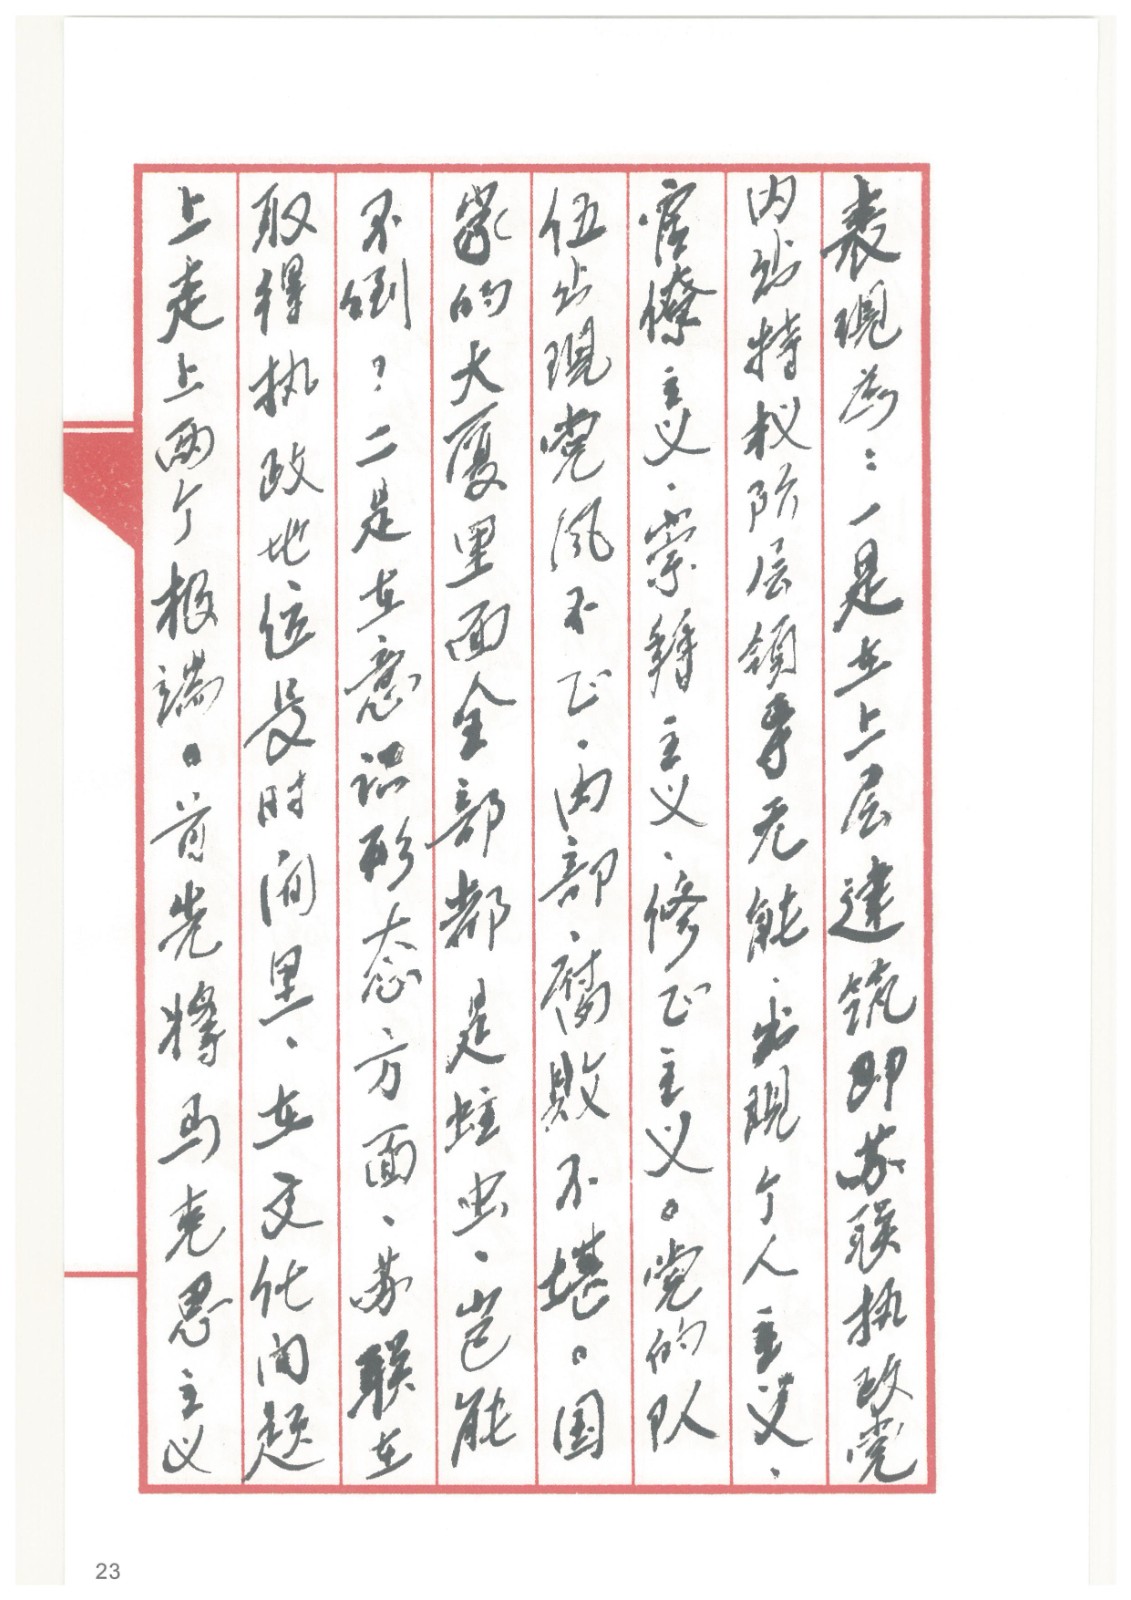 表现为：一是在上层建筑即苏联执政党
内部特权阶层领导无能、出现个人主义、
官僚主义、宗释主义、修正主义。党的队
伍出现党风不正、内部、腐败不堪。国
家的大厦里面全部都是蛀虫、岂能
不倒？二是在意识形态方面、苏联在
取得执政地位长时间里、在文化问题
上走上两个极端。首先将马克思主义
23